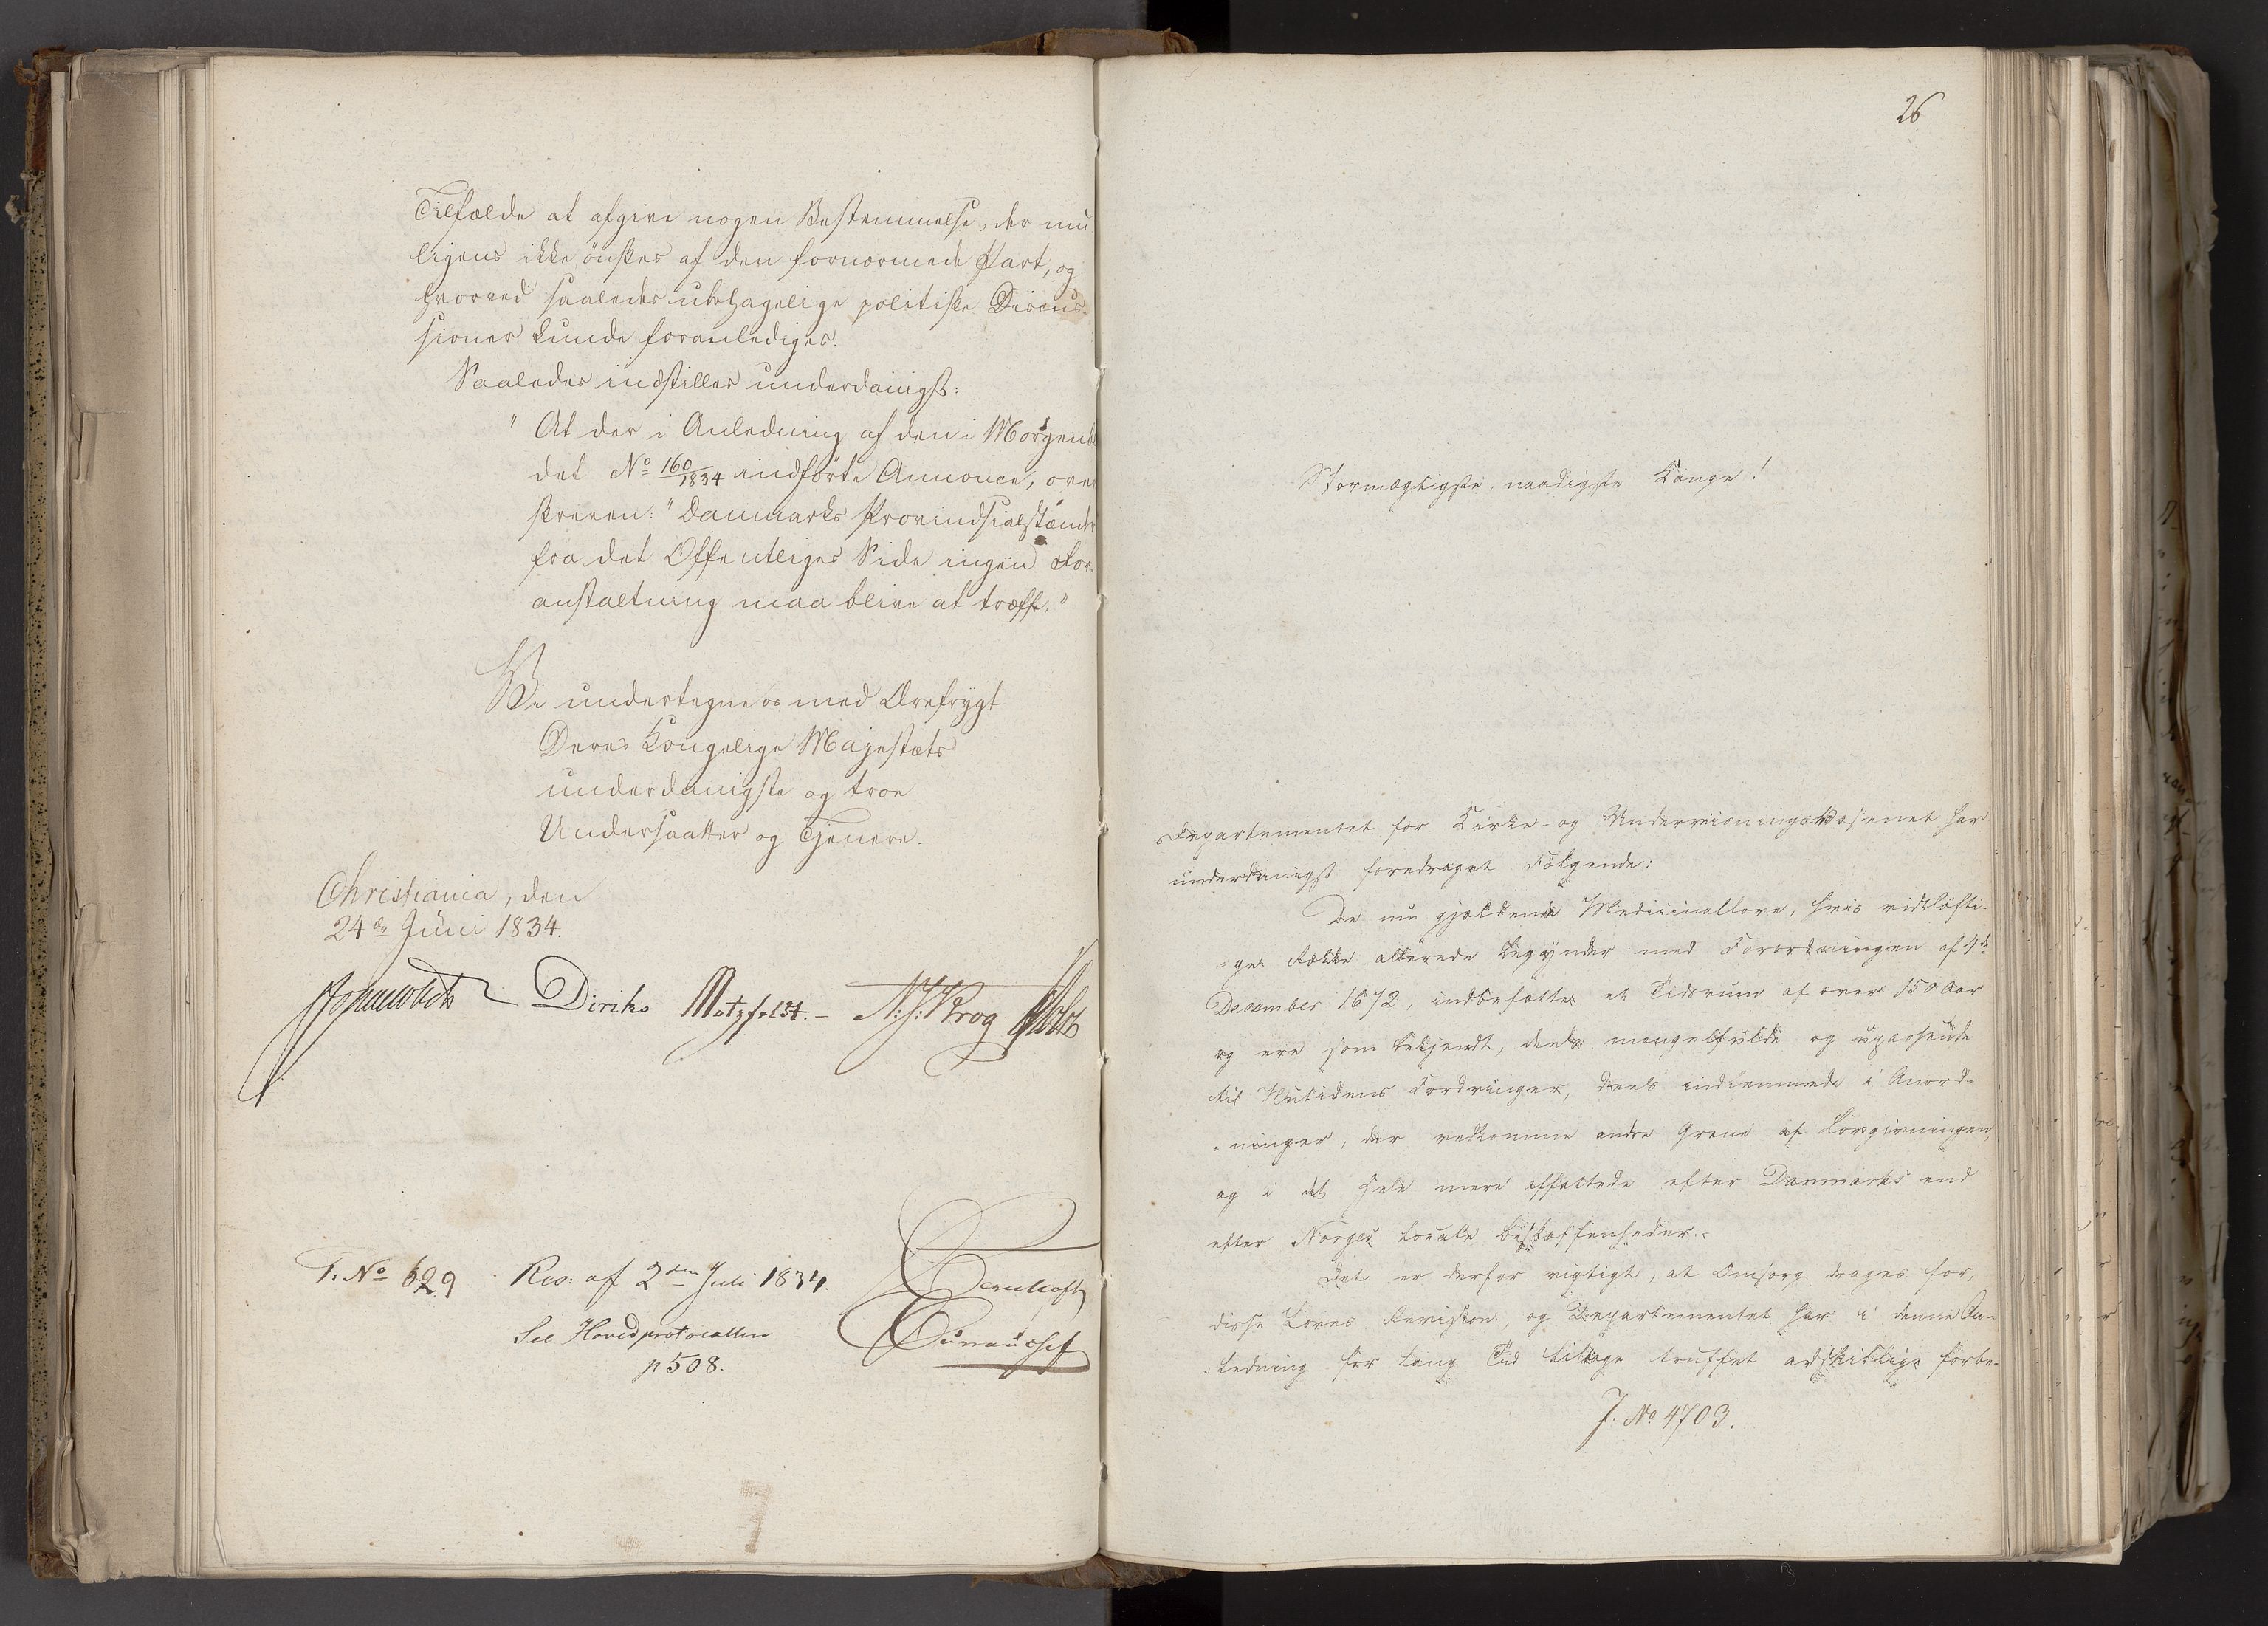 Tilfælde at afgive nogen Bestemmelse, der mu
ligens ikke önskes af den fornærmede Part, og
hvorved saaledes ubehagelige politiske Discus-
sioner kunde foranlediges.
Saaledes indstilles underdanigst:
"At der i Anledning af den i Morgenbl
det No 160/1834 indförte Annonce, over
skreven: "Danmarks Provindsialstænder
fra det Offentliges Side ingen For-
anstaltning maa blive at træffe."
Vi undertegne os med Ærefrygt
Deres Kongelige Majestæts
underdanigste og troe
Undersaatter og Tjenere.
Christiania, den
24de Juni 1834.
Diriks Motzfeldt.- N: J: Krog
T. No 629 Res: af 2den Juli 1834.
See Hovedprotocollen
p 508.
26
Stormægtigste, naadigste Konge!
Departementet for Kirke- og Underviisningsvæsenet har
underdanigst foredraget Fölgende:
De nu gjældende Medicinallove, hvis vidtlöfti-
-ge Række allerede begynder med Forordningen af 4de
December 1672, indbefatter et Tidsrum af over 150 Aar
og ere som bekjendt, deels mangelfulde og upassende
til Nutidens Fordringer, deels indlemmede i Anord-
-ninger, der vedkomme andre Grene af Lovgivningen
og i det Hele mere affattede efter Danmarks end
efter Norges locale Beskaffenheder.
Det er derfor vigtigt, at Omsorg drages for,
disse Loves Revision, og Departementet har i denne An-
-ledning for lang Tid tilbage truffet adskillige forbe-
J. No 4703.